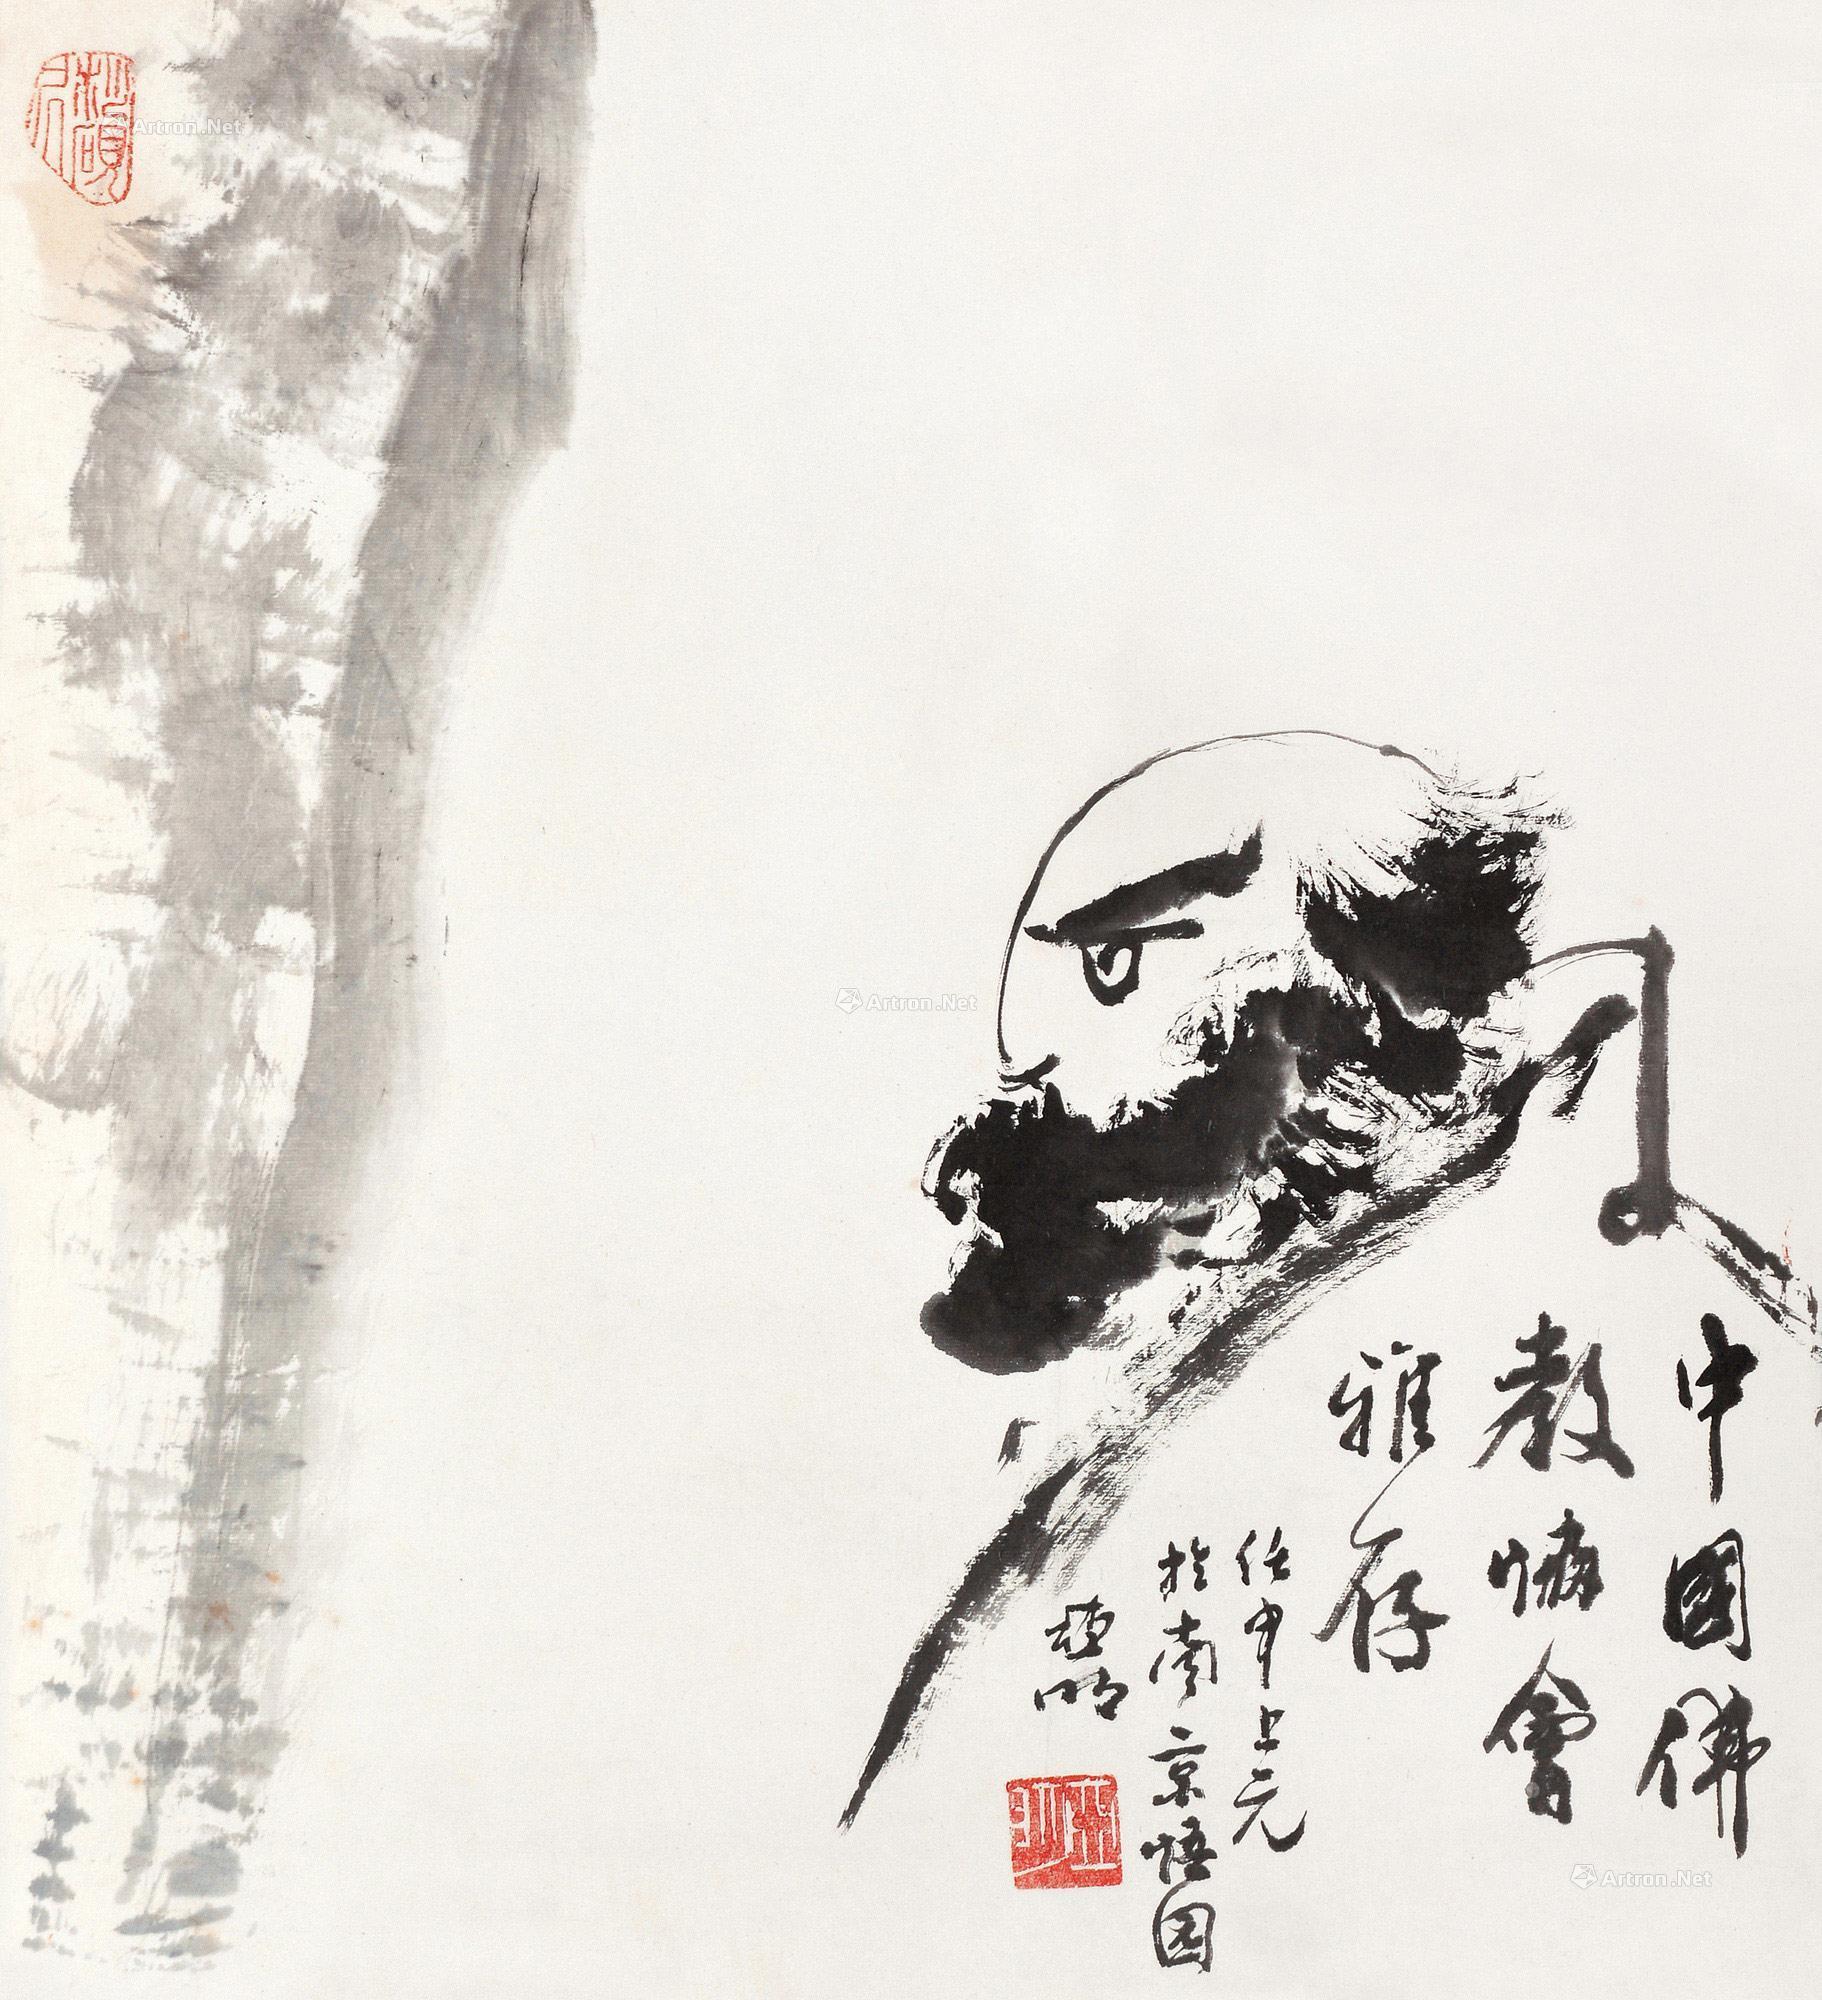 中國佛
教協會
雅存
任申上元
於南京悟園
亞明
亞明
Artron.Net
Artron.Net
Artron.Net